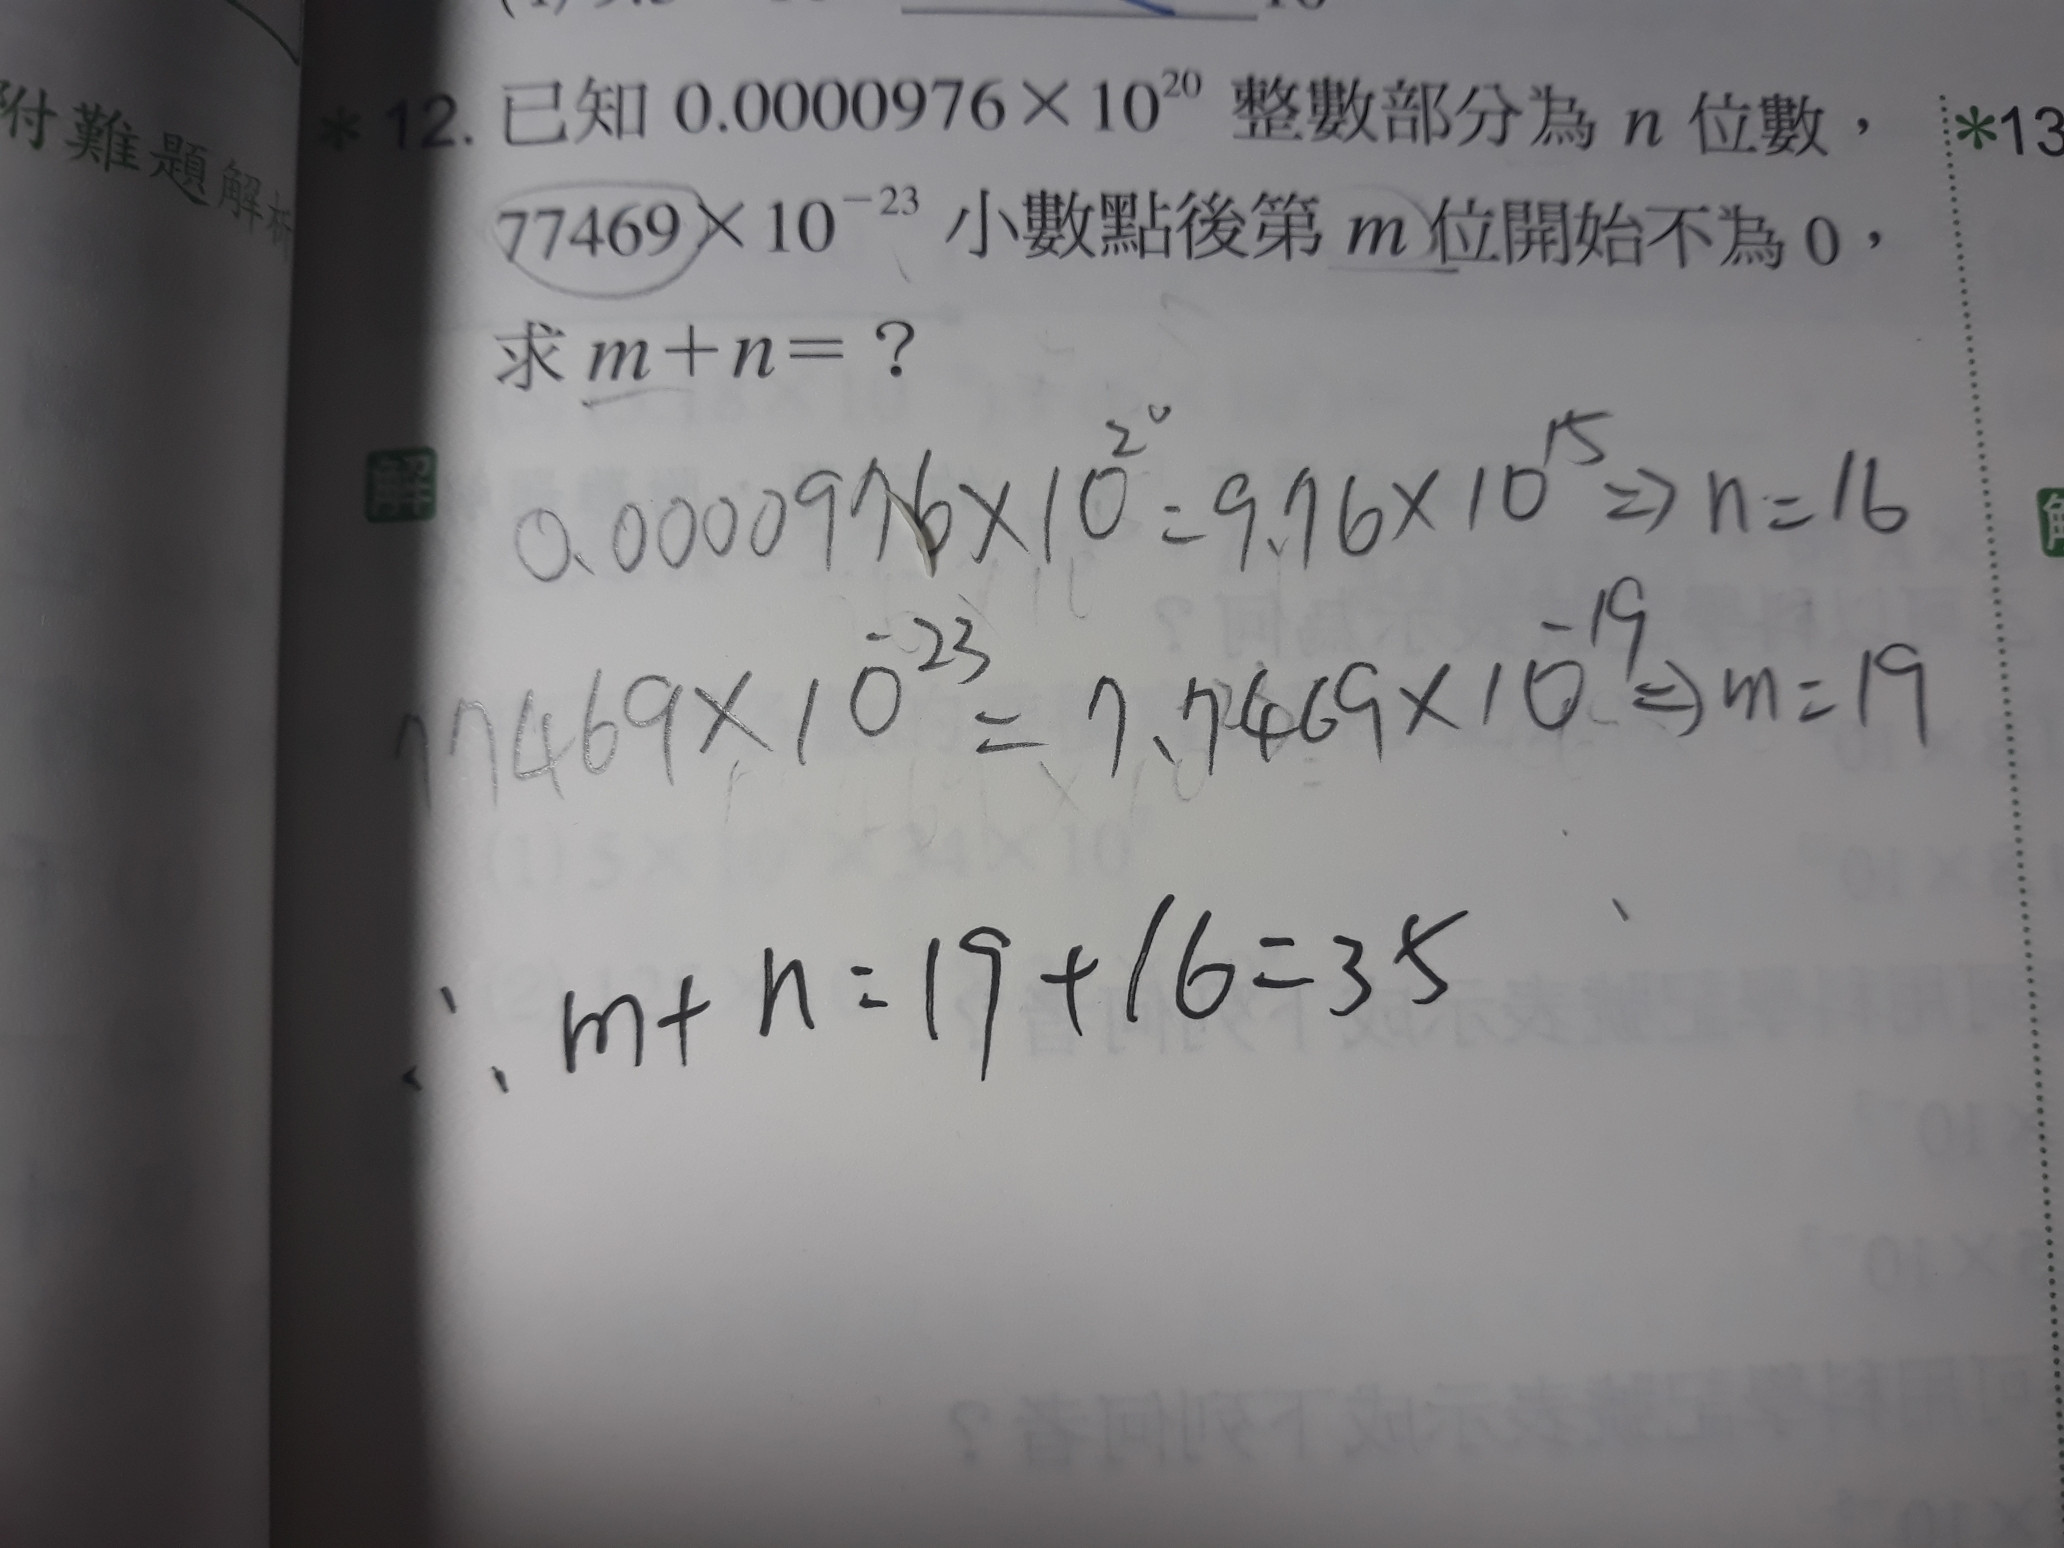 附難題解析
*12. 已知 0.0000976×10²⁰ 整數部分為 n 位數，
77469×10⁻²³ 小數點後第 m 位開始不為 0，
求 m+n=？
*13
解
0.0000976×10²⁰=9.76×10¹⁵⇒n=16
77469×10⁻²³=7.7469×10⁻¹⁹⇒m=19
∴m+n=19+16=35